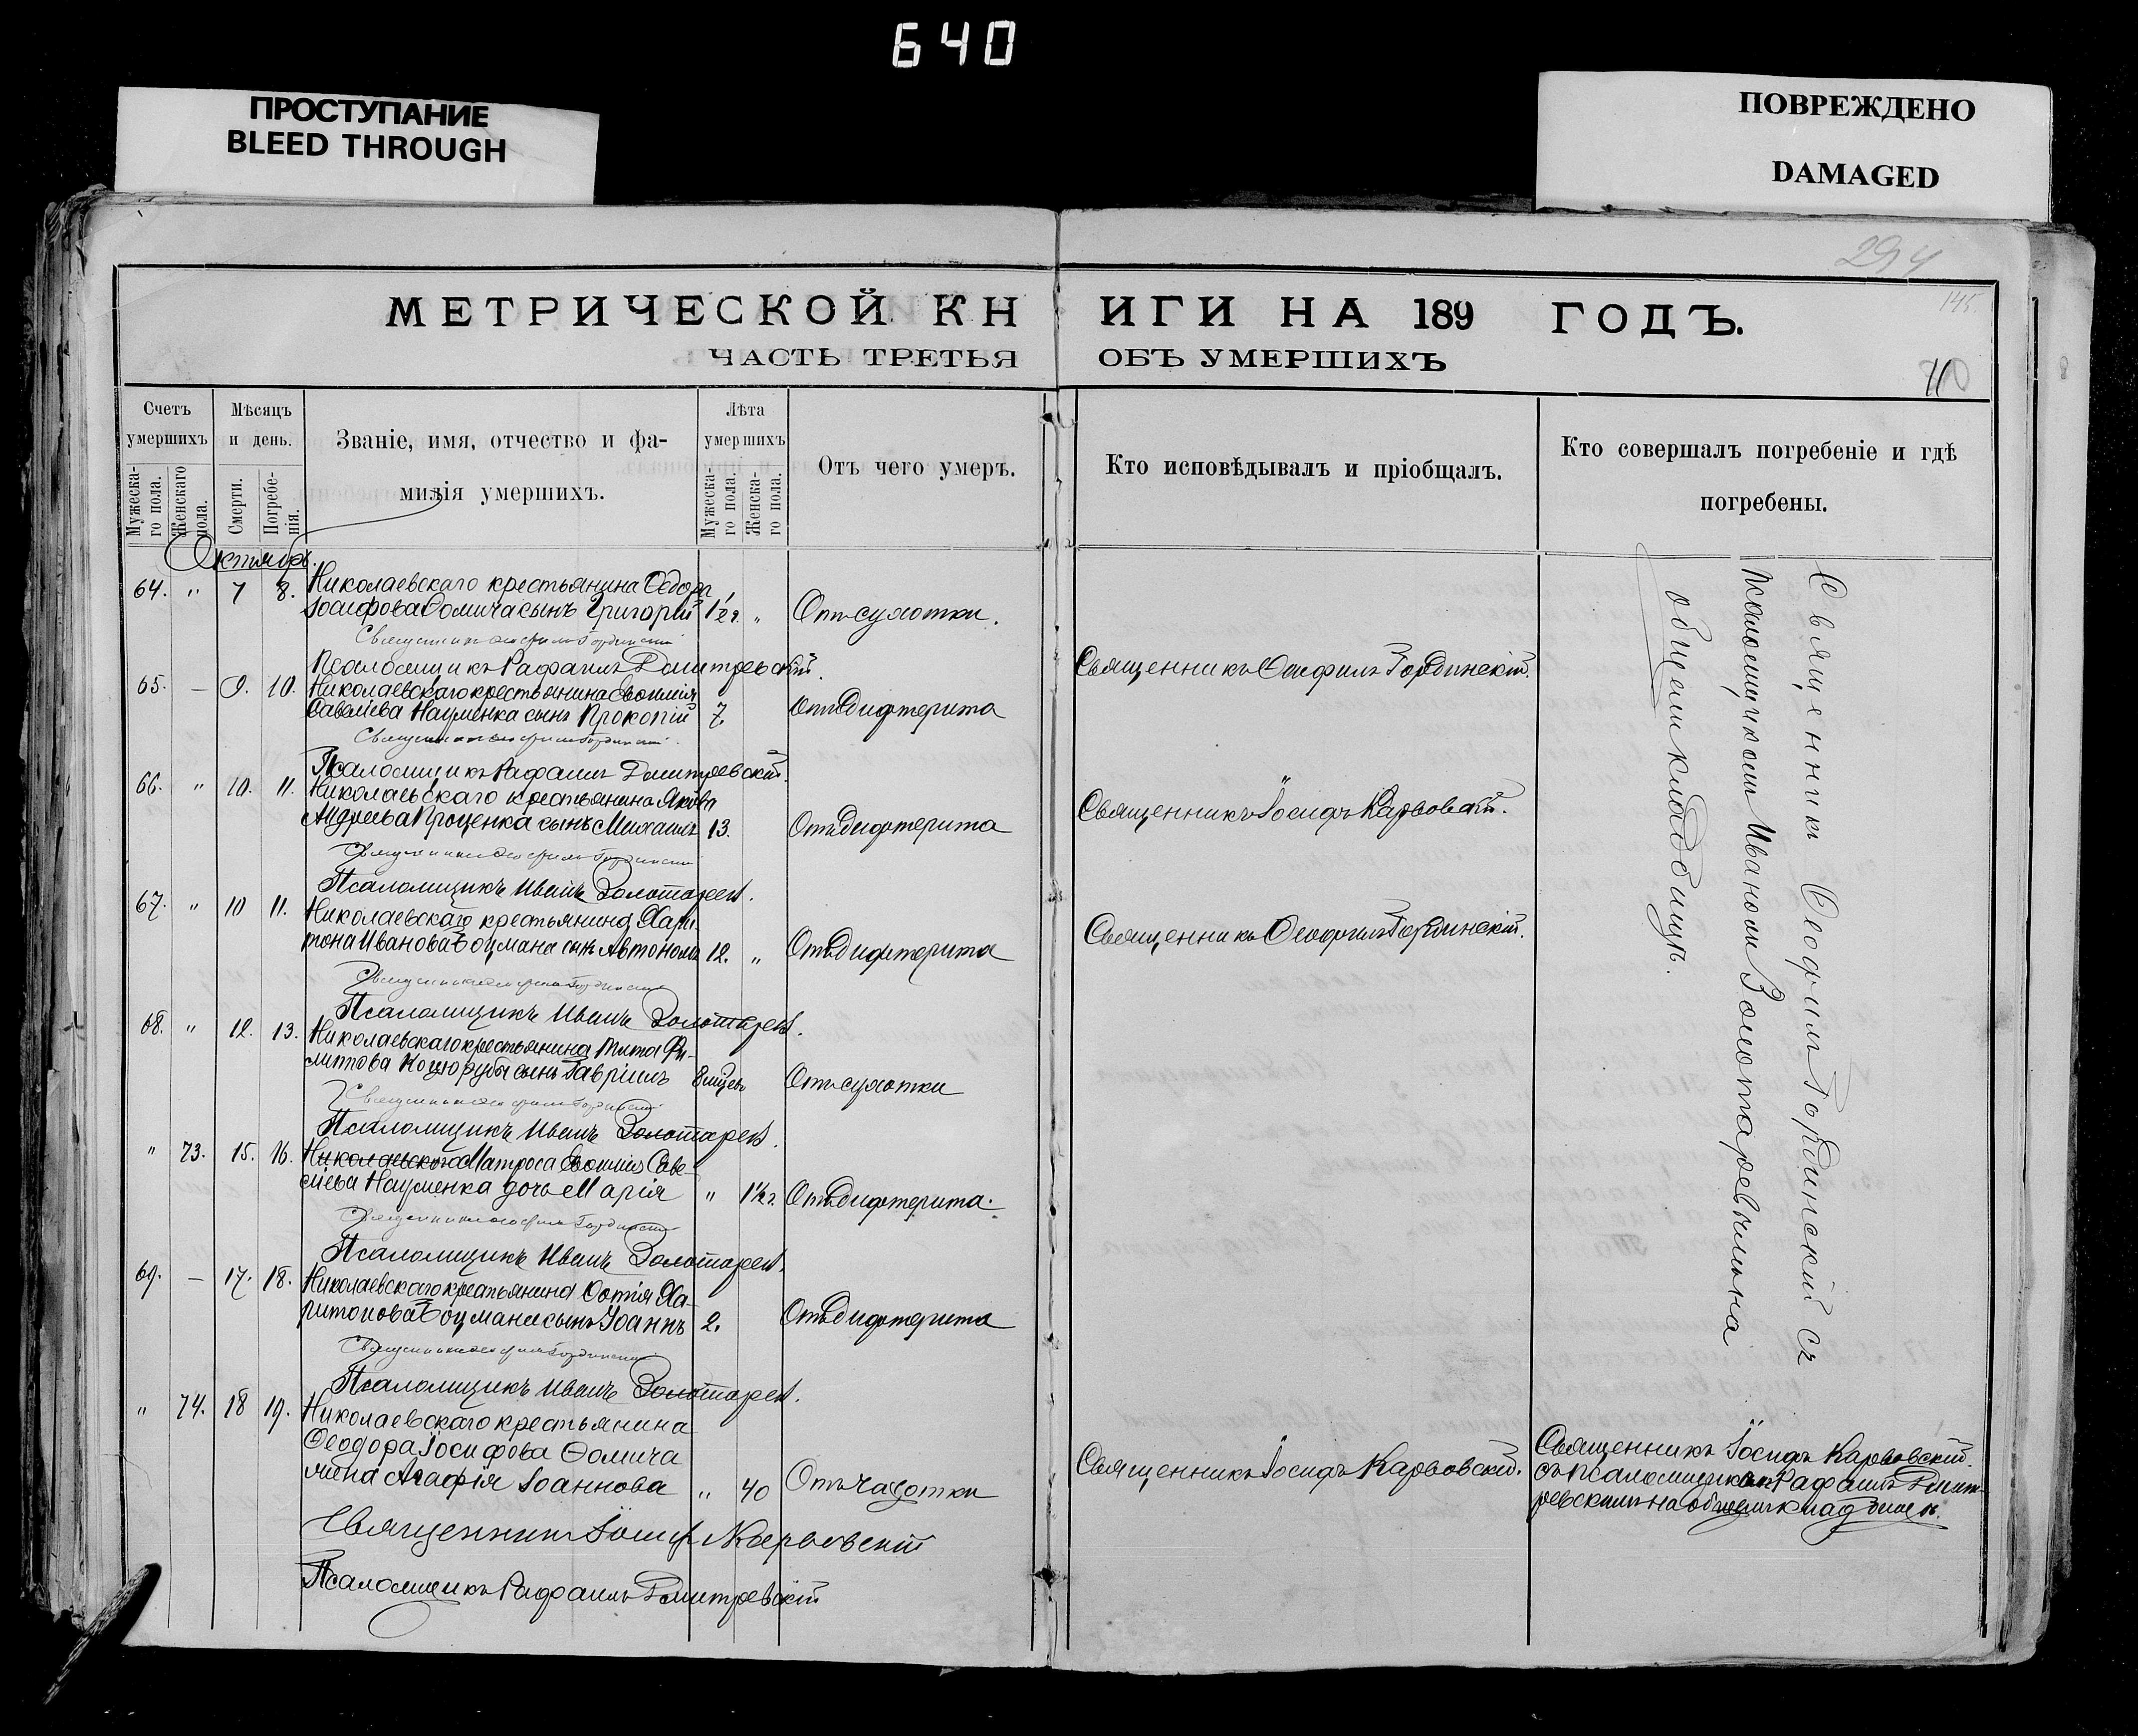 640
ПРОСТУПАНИЕ
BLEED THROUGH
ПОВРЕЖДЕНО
DAMAGED
294
145.
МЕТРИЧЕСКОЙ КНИГИ НА 189 ГОДЪ.
ЧАСТЬ ТРЕТЬЯ ОБЪ УМЕРШИХЪ
Счетъ умершихъ
Мужеска-го пола.
Женскаго пола.
Мѣсяцъ и день.
Смерти.
Погребе-нія.
Званіе, имя, отчество и фа-
милія умершихъ.
Лѣта умершихъ
Мужеска-го пола.
Женска-го пола.
Отъ чего умеръ.
Кто исповѣдывалъ и пріобщалъ.
Кто совершалъ погребеніе и гдѣ
погребены.
Октябрь.
64. " 7 8. Николаевскаго крестьянина Ѳедора
Іосифова Ѳомича сынъ Григорій 1½ г. " Отъ сухотки.
Священникъ Ѳеофилъ Гординскій
Псаломщикъ Рафаилъ Дмитревскій.
Священникъ Ѳеофилъ Гординскій.
65. — 9. 10. Николаевскаго крестьянина Евѳимія
Савелiева Науменка сынъ Прокопій 7. Отъ дифтерита
Священникъ Ѳеофилъ Гординскій.
Псаломщикъ Рафаилъ Дмитревскій.
66. " 10. 11. Николаевскаго крестьянина Якова
Андреева Проценка сынъ Михаилъ 13. Отъ дифтерита
Священникъ Іосифъ Карвовскій.
Священникъ Ѳеофилъ Гординскій
Псаломщикъ Иванъ Золотарев.
67. " 10 11. Николаевскаго крестьянина Хари-
тона Иванова Боцмана сынъ Автономъ 12. " Отъ дифтерита
Священникъ Ѳеофилъ Гординскій.
Священникъ Ѳеофилъ Гординскій
Псаломщикъ Иванъ Золотарев.
68. " 12. 13. Николаевскаго крестьянина Тита Фи-
липпова Коцюрубы сынъ Гавріилъ 8 мѣсяц Отъ сухотки
Священникъ Ѳеофилъ Гординскій
Псаломщикъ Иванъ Золотарев.
" 73. 15. 16. Николаевскаго Матроса Евѳимія Саве-
ліева Науменка дочь Марія " 1½ г. Отъ дифтерита.
Священникъ Ѳеофилъ Гординскій
Псаломщикъ Иванъ Золотарев.
69. — 17. 18. Николаевскаго крестьянина Фотія Ха-
ритонова Боцмана сынъ Іоаннъ 2. Отъ дифтерита
Священникъ Ѳеофилъ Гординскій
Псаломщикъ Иванъ Золотарев.
" 74. 18 19. Николаевскаго крестьянина
Ѳеодора Іосифова Ѳомича
жена Агафія Іоаннова " 40 Отъ чахотки
Священникъ Іосифъ Карвовскій.
Священникъ Іосифъ Карвовскій
Псаломщикъ Рафаилъ Дмитревскій
Священникъ Ѳеофилъ Гординскій съ
псаломщикомъ Иваномъ Золотаревымъ на
общемъ кладбищѣ.
Священникъ Іосифъ Карвовскій
съ псаломщикомъ Рафаиломъ Дмит-
ревскимъ на общемъ кладбищѣ.